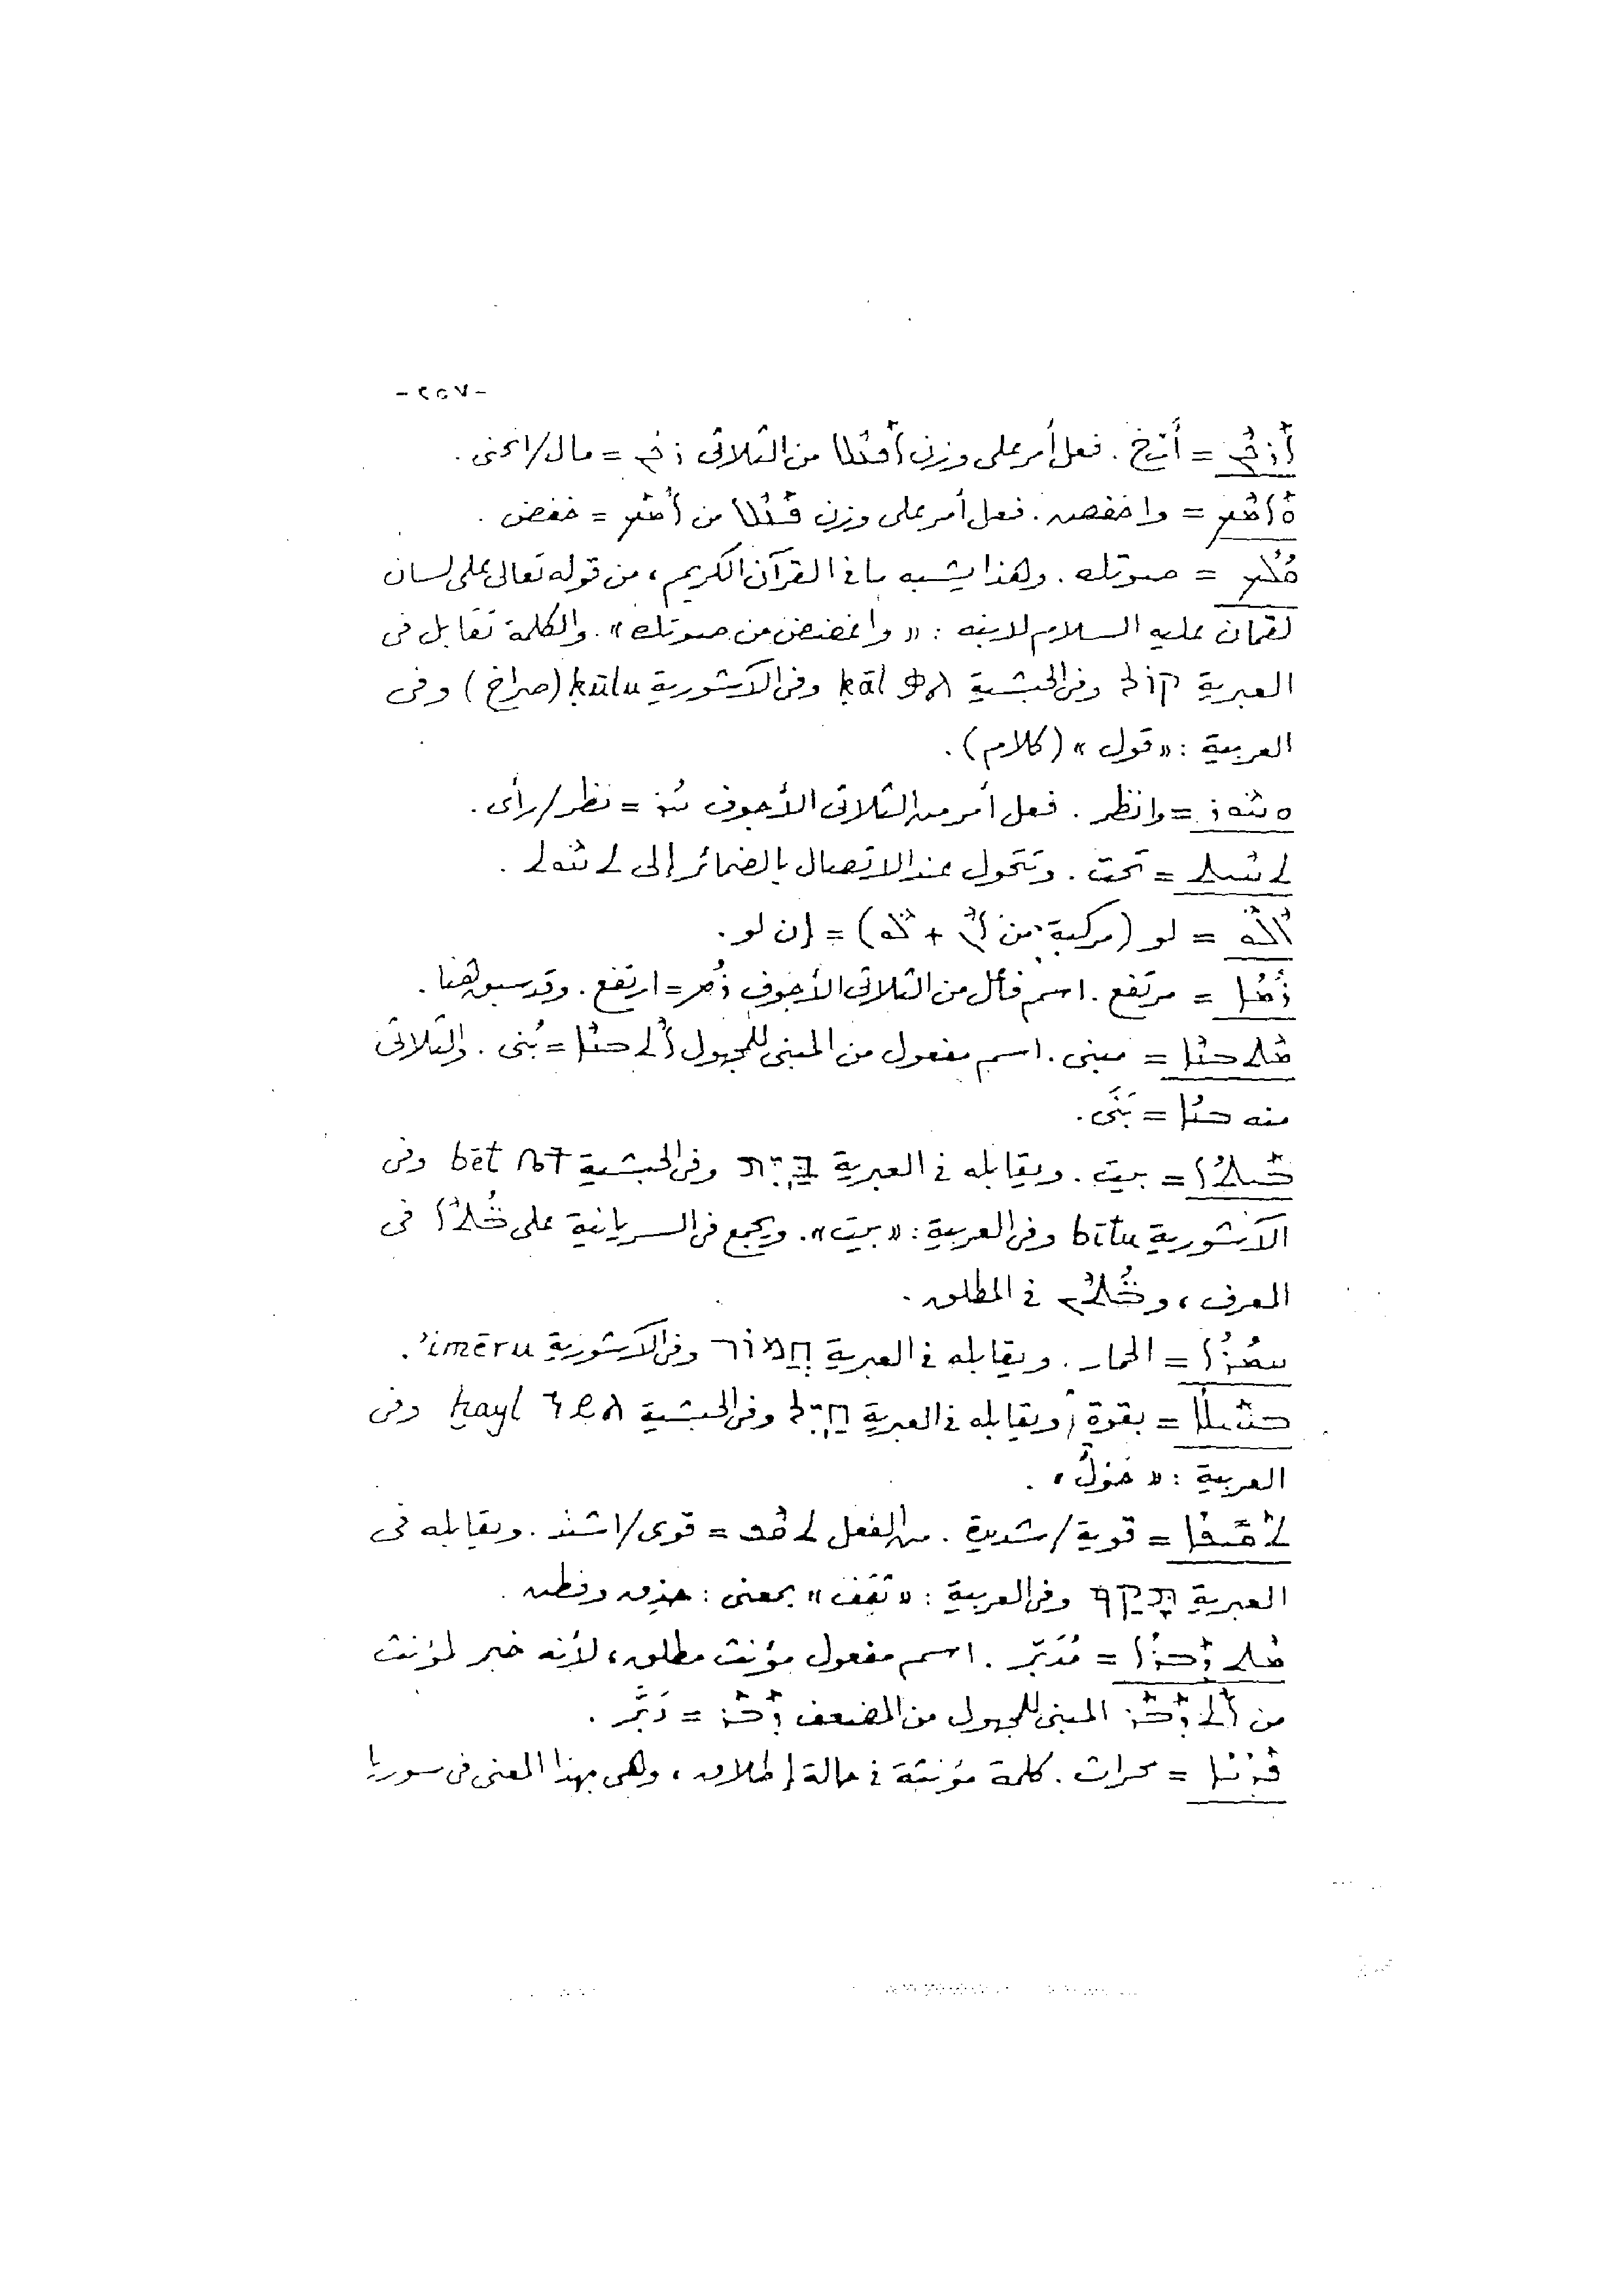 -٢٥٧-
ܐܰܪܟܶܢ = أَرْخِ . فعل أمر على وزن ܐܰܩܛܶܠ من الثلاثى ܪܟܶܢ = مال/انحنى .
ܘܰܐܡܶܟ = واخفض . فعل أمر على وزن ܩܰܛܶܠ من ܐܰܡܶܟ = خفض .
ܩܳܠܳܟ = صوتك . وهذا يشبه ما فى القرآن الكريم ، من قوله تعالى على لسان
لقمان عليه السلام لابنه : « واغضض من صوتك » . والكلمة تقابل فى
العبرية קוֹל وفى الحبشية ቃል ḳāl وفى الآشورية ḳūlu (صراخ) وفى
العربية : « قول » (كلام) .
ܘܚܽܘܪ = وانظر . فعل أمر من الثلاثى الأجوف ܚܳܪ = نظر/رأى .
ܬܚܶܝܬ = تحت . وتتحول عند الاتصال بالضمائر إلى ܬܚܽܘܬ .
ܐܶܠܽܘ = لو (مركبة من ܐܶܢ + ܠܘ) = إن لو .
ܪܳܡܳܐ = مرتفع . اسم فاعل من الثلاثى الأجوف ܪܳܡ = ارتفع . وقد سبق هنا .
ܡܶܬܒܢܶܐ = مبنى . اسم مفعول من المبنى للمجهول ܐܶܬܒܢܺܝ = بُنى . والثلاثى
منه ܒܢܳܐ = بَنَى .
ܒܰܝܬܳܐ = بيت . ويقابله فى العبرية בַּיִת وفى الحبشية ቤት bēt وفى
الآشورية bītu وفى العربية : « بيت » . ويجمع فى السريانية على ܒܳܬܶܐ فى
المعرف ، و ܒܳܬܺܝܢ فى المطلق .
ܚܡܳܪܳܐ = الحمار . ويقابله فى العبرية חֲמוֹר وفى الآشورية imēru' .
ܒܚܰܝܠܳܐ = بقوة ، ويقابله فى العبرية חַיִל وفى الحبشية ኀይል ḫayl وفى
العربية : « خَوْلٌ » .
ܬܰܩܺܝܦܳܐ = قوية/شديدة . من الفعل ܬܩܶܦ = قوى/اشتد . ويقابله فى
العبرية תָּקַף وفى العربية : « ثَقِف » بمعنى : حذق وفطن .
ܡܶܬܕܰܒܪܳܐ = مُدَبَّر . اسم مفعول مؤنث مطلق ، لأنه خبر لمؤنث
من ܐܶܬܕܰܒܰܪ المبنى للمجهول من المضعف ܕܰܒܰܪ = دَبَّر .
ܦܰܕܳܢܳܐ = محراث . كلمة مؤنثة فى حالة إطلاق ، وهى بهذا المعنى فى سوريا